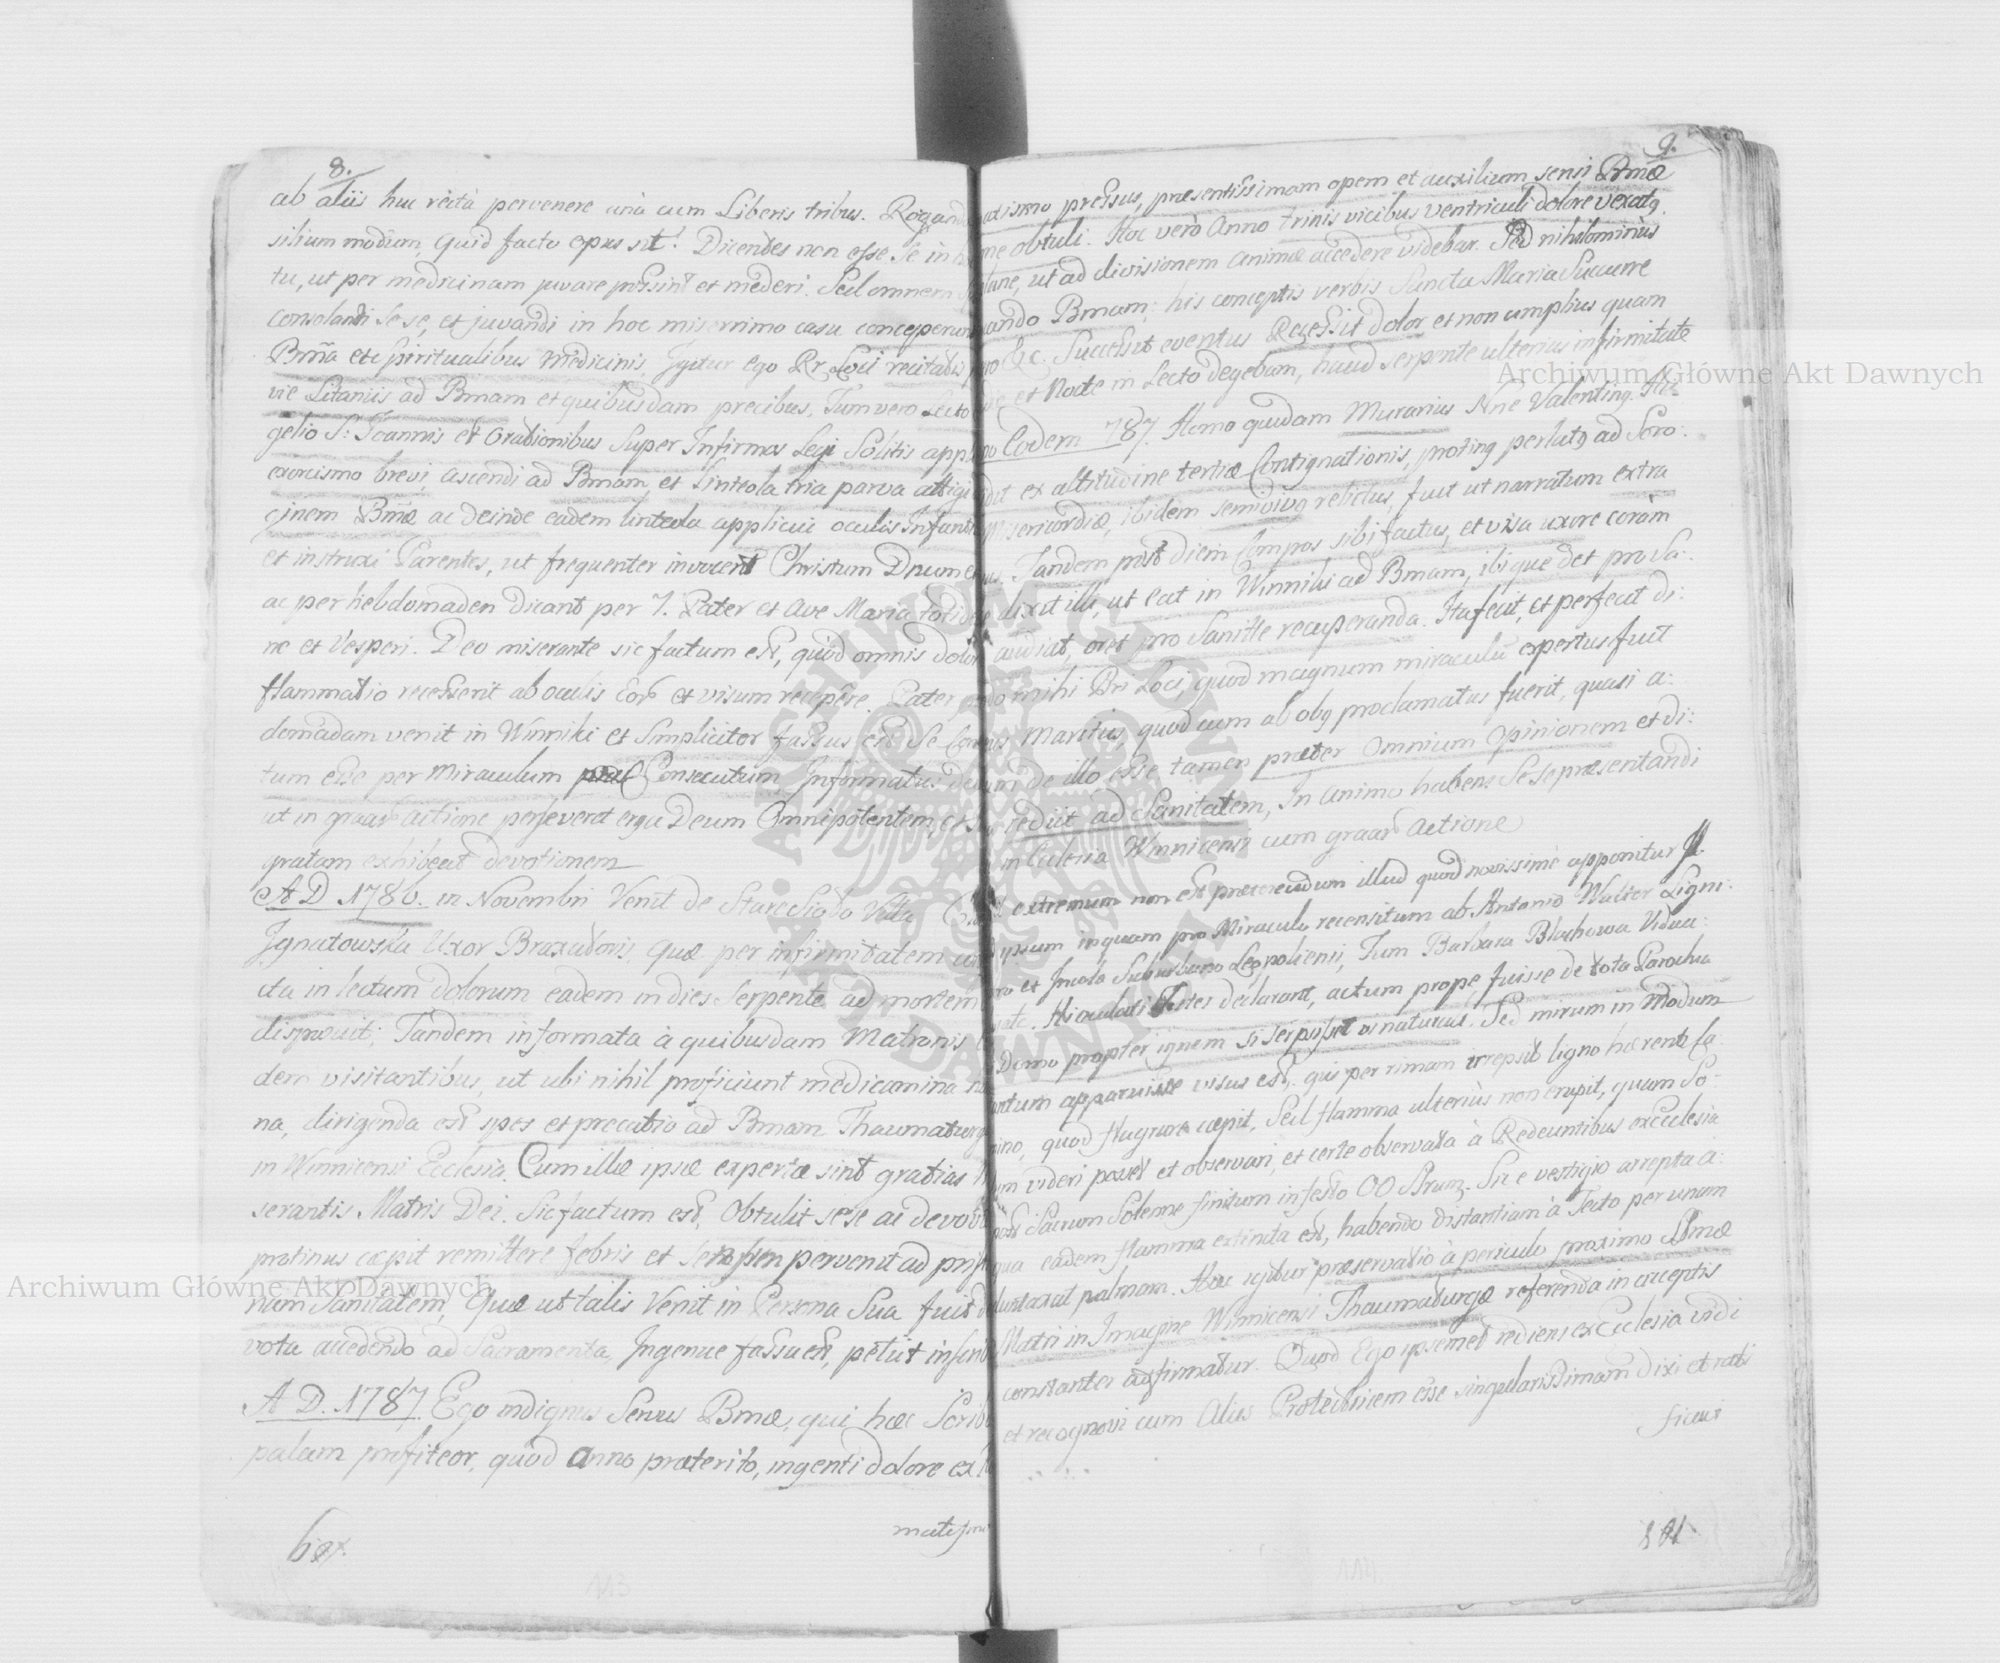 8.
ab aliis huc recta pervenere una cum Liberis tribus. Rogand
silium modum, quid facto opus sit? Dicentes non esse Se in
tu, ut per medicinam juvare possint et mederi. Sed omnem
consolandi Sese, et juvandi in hoc miserrimo casu conceperunt
Bmã et Spiritualibus Medicinis, Igitur ego Pr Loci recitatis
vie Litaniis ad Bmam et quibusdam precibus, Tum vero Lecto
gelio S: Joannis et Orationibus Super Infirmos Legi Solitis app
exorcismo brevi, ascendi ad Bmam et linteola tria parva attigi
ginem Bmæ ac deinde eadem linteola applicui oculis Infant
et instruxi Parentes, ut frequenter invocent Christum Dnum
ac per hebdomadem dicant per 7. Pater et Ave Maria
ne et Vesperi. Deo miserante sic factum est, quod omnis dolor
flammatio recesserit ab oculis Eor et visum recepêre. Pater
domadam venit in Winniki et Simpliciter fassus est Se
tum esse per Miraculum Consecutum Informatus
ut in graar actione perseveret erga Deum Omnipotentem,
gratam exhibeat devotionem
A D. 1786. in Novembri Venit de Stare Siodo Villa
Ignatowska Uxor Braxatoris, quæ per infirmitatem
cta in lectum dolorum eadem in dies Serpente ad mortem
disposuit; Tandem informata à quibusdam Matronis
dem visitantibus, ut ubi nihil proficiunt medicamina
na, dirigenda est spes et precatio ad Bmam Thaumaturg
in Winnicensi Ecclesia. Cum illæ ipsæ expertæ sint gratias
serantis Matris Dei. Sic factum est, Obtulit sese ac devo
protinus cæpit remittere febris et Sensim pervenit ad pris
nam Sanitatem, Quæ ut talis Venit in Persona Sua fuit
vota accedendo ad Sacramenta, Ingenue fassa est, petiit inscri
A. D. 1787. Ego indignus Servus Bmæ, qui hæc Scrib
palam profiteor, quod anno præterito, ingenti dolore ex
113
9.
pressus, præsentissimam opem et auxilium sensi Bmæ
me obtuli. Hoc verò Anno trinis vicibus ventriculi dolore vexatq
ut ad divisionem animæ accedere videbar. Sed nihilominus
ando Bmam; his conceptis verbis Sancta Maria Succurre
&c. Successit eventus Recessit dolor et non amplius quam
et Nocte in Lecto degebam, haud serpente ulterius infirmitate
Eodem 787. Homo quidam Murarius Nne Valentinq
ex altitudine tertiæ Contignationis, protinq perlatq ad Soro:
Misericordiæ, ibidem semivivq relictus, fuit ut narratum extra
Tandem post diem Compos sibi factus, et visa uxore coràm
dixit illi, ut eat in Winniki ad Bmam, ibique det pro Sa:
audiat, oret pro Sanitte recuperanda. Ita fecit, et perfecit di:
mihi Pri Loci quod magnum miraculũ expertus fuit
Maritus, quod cum ab obq proclamatus fuerit, quasi a:
de illo esse tamen præter Omnium Opinionem et di:
rediit ad Sanitatem, In animo habens Sese præsentandi
in Ecclesia Winnicensi cum graar Actione
extremum non est prætereundum illud quod novissime apponitur
ipsum inquam pro Miraculo recensitum ab Antonio Walter Ligni:
et Incola Suburbano Leopoliensi, Tum Barbara Blachowa Vidua:
Hi oculati Testes declarant, actum prope, fuisse de tota Parochia
Domo propter ignem si serpsisset vi naturæ. Sed mirum in Modum
apparuisse visus est, qui per rimam irrepsit ligno hærenti
quod flagrare cæpit, Sed flamma ulterius non erupit, quam So:
videri posset et observari, et certe observata à Redeuntibus ex Ecclesia
post Sacrum Solenne finitum in festo OO Strum. Sic e vestigio arrepta a:
qua eadem flamma extincta est, habendo distantiam à Tecto per unam
duntaxat palmam. Hæc igitur præservatio à periculo proximo Bmæ
Matri in Imagine Winnicensi Thaumaturgæ referenda in acceptis
constanter affirmatur. Quod Ego ipsemet rediens ex Ecclesia vidi
et recognovi cum Aliis Protectionem esse singularissimam dixi et rati
ficavi
114
Archiwum Główne Akt Dawnych
Archiwum Główne Akt Dawnych
ARCHIWUM GŁÓWNE AKT DAWNYCH